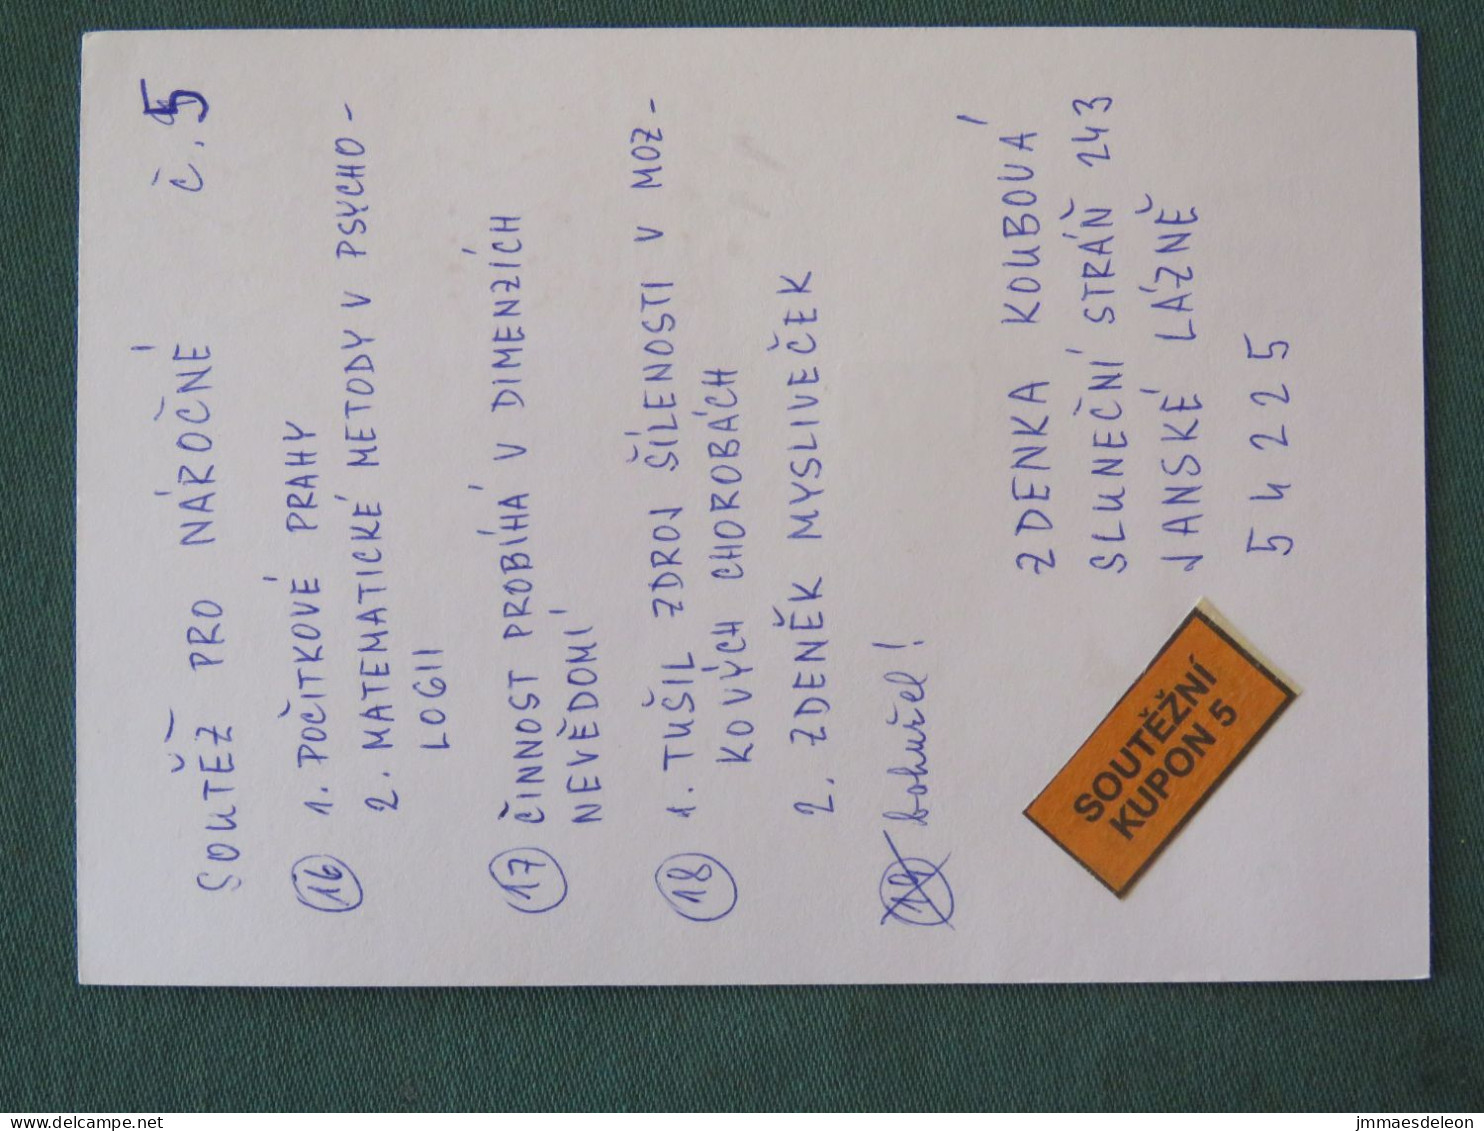 SOUTĚŽ PRO NÁROČNÉ č. 5
16 1. POČITKOVÉ PRAHY
2. MATEMATICKÉ METODY V PSYCHO-
LOGII
17 ČINNOST PROBÍHÁ V DIMENZÍCH
NEVĚDOMÍ
18 1. TUŠIL ZDROJ ŠÍLENOSTI V MOZ-
KOVÝCH CHOROBÁCH
2. ZDENĚK MYSLIVEČEK
19 bohužel!
ZDENKA KOUBOVÁ
SLUNEČNÍ STRÁŇ 243
JANSKÉ LÁZNĚ
54225
SOUTĚŽNÍ
KUPON 5
http://www.delcampe.net
jmmaesdeleon